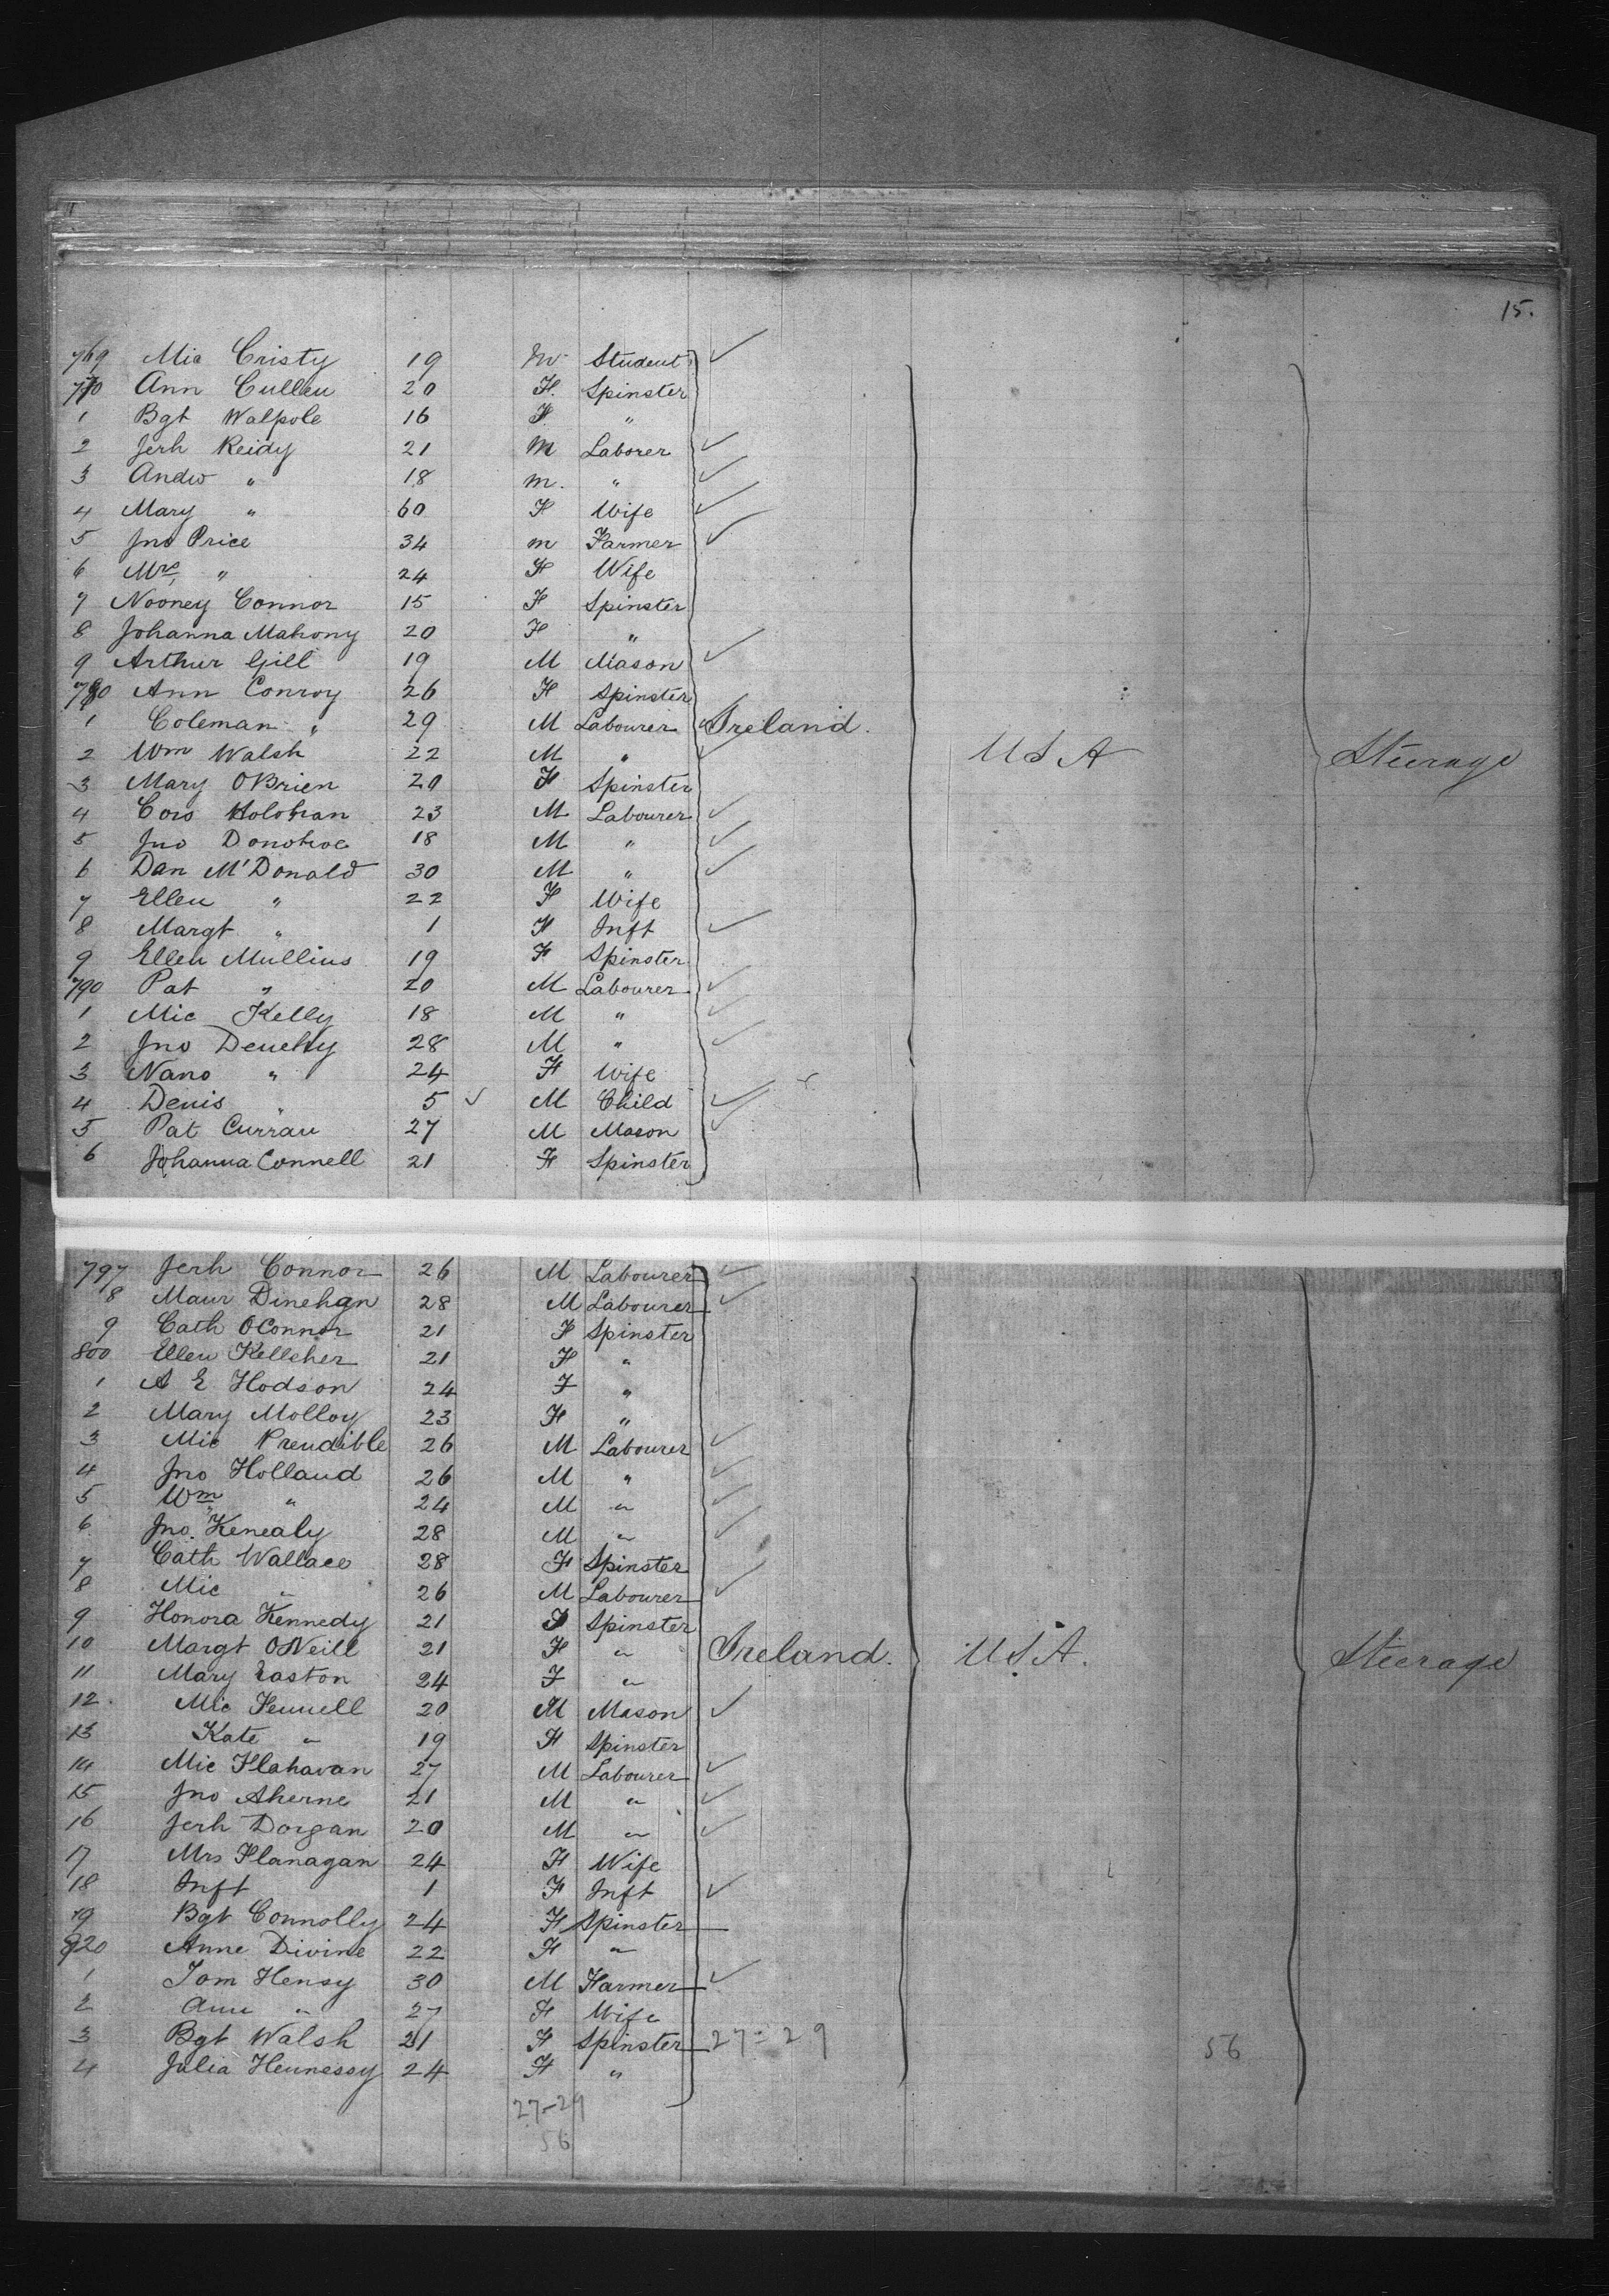 15.
769 Mic Cristy 19 M Student
770 Ann Cullen 20 F. Spinster
1 Bgt Walpole 16 F "
2 Jerh Reidy 21 M Laborer
3 Andw " 18 M. "
4 Mary " 60 F Wife
5 Jno Price 34 M Farmer
6 Mrs " 24 F Wife
7 Nooney Connor 15 F Spinster
8 Johanna Mahony 20 F "
9 Arthur Gill 19 M Mason
780 Ann Conroy 26 F Spinster
1 Coleman " 29 M Labourer Ireland.
2 Wm Walsh 22 M " USA Steerage
3 Mary OBrien 20 F Spinster
4 Cors Holohan 23 M Labourer
5 Jno Donohoe 18 M "
6 Dan McDonald 30 M "
7 Ellen " 22 F Wife
8 Margt " 1 F Inft
9 Ellen Mullins 19 F Spinster
790 Pat " 20 M Labourer
1 Mic Kelly 18 M "
2 Jno Denehy 28 M "
3 Nano " 24 F Wife
4 Denis " 5 M Child
5 Pat Curran 27 M Mason
6 Johanna Connell 21 F Spinster
797 Jerh Connor 26 M Labourer
8 Maur Dinehan 28 M Labourer
9 Cath OConnor 21 F Spinster
800 Ellen Kelleher 21 F "
1 A E Hodson 24 F "
2 Mary Molloy 23 F "
3 Mic Prendible 26 M Labourer
4 Jno Holland 26 M "
5 Wm " 24 M "
6 Jno. Kenealy 28 M "
7 Cath Wallace 28 F Spinster
8 Mic " 26 M Labourer
9 Honora Kennedy 21 F Spinster
10 Margt ONeill 21 F " Ireland. USA. Steerage
11 Mary Easton 24 F "
12. Mic Fennell 20 M Mason
13 Kate " 19 F Spinster
14 Mic Flahavan 27 M Labourer
15 Jno Aherne 21 M "
16 Jerh Dorgan 20 M "
17 Mrs Flanagan 24 F Wife
18 Inft 1 F Inft
19 Bgt Connolly 24 F Spinster
820 Anne Divine 22 F "
1 Tom Hensy 30 M Farmer
2 Ann " 27 F Wife
3 Bgt Walsh 21 F Spinster 27=29 56
4 Julia Hennessy 24 F "
27-29
56